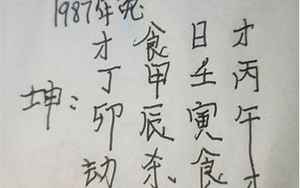 1987年兔
坤：
才丁卯劫
食甲辰杀
日壬寅食
才丙午